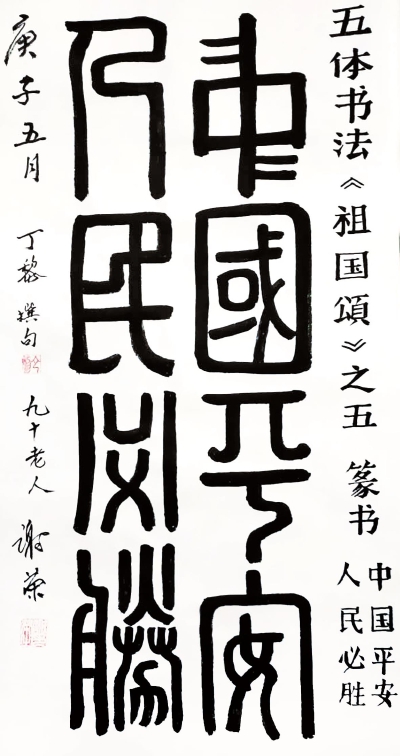 五体书法《祖国頌》之五 篆书
中国平安
人民必胜
中國平安
人民必勝
庚子五月 丁黎撰句 九十老人 谢荣